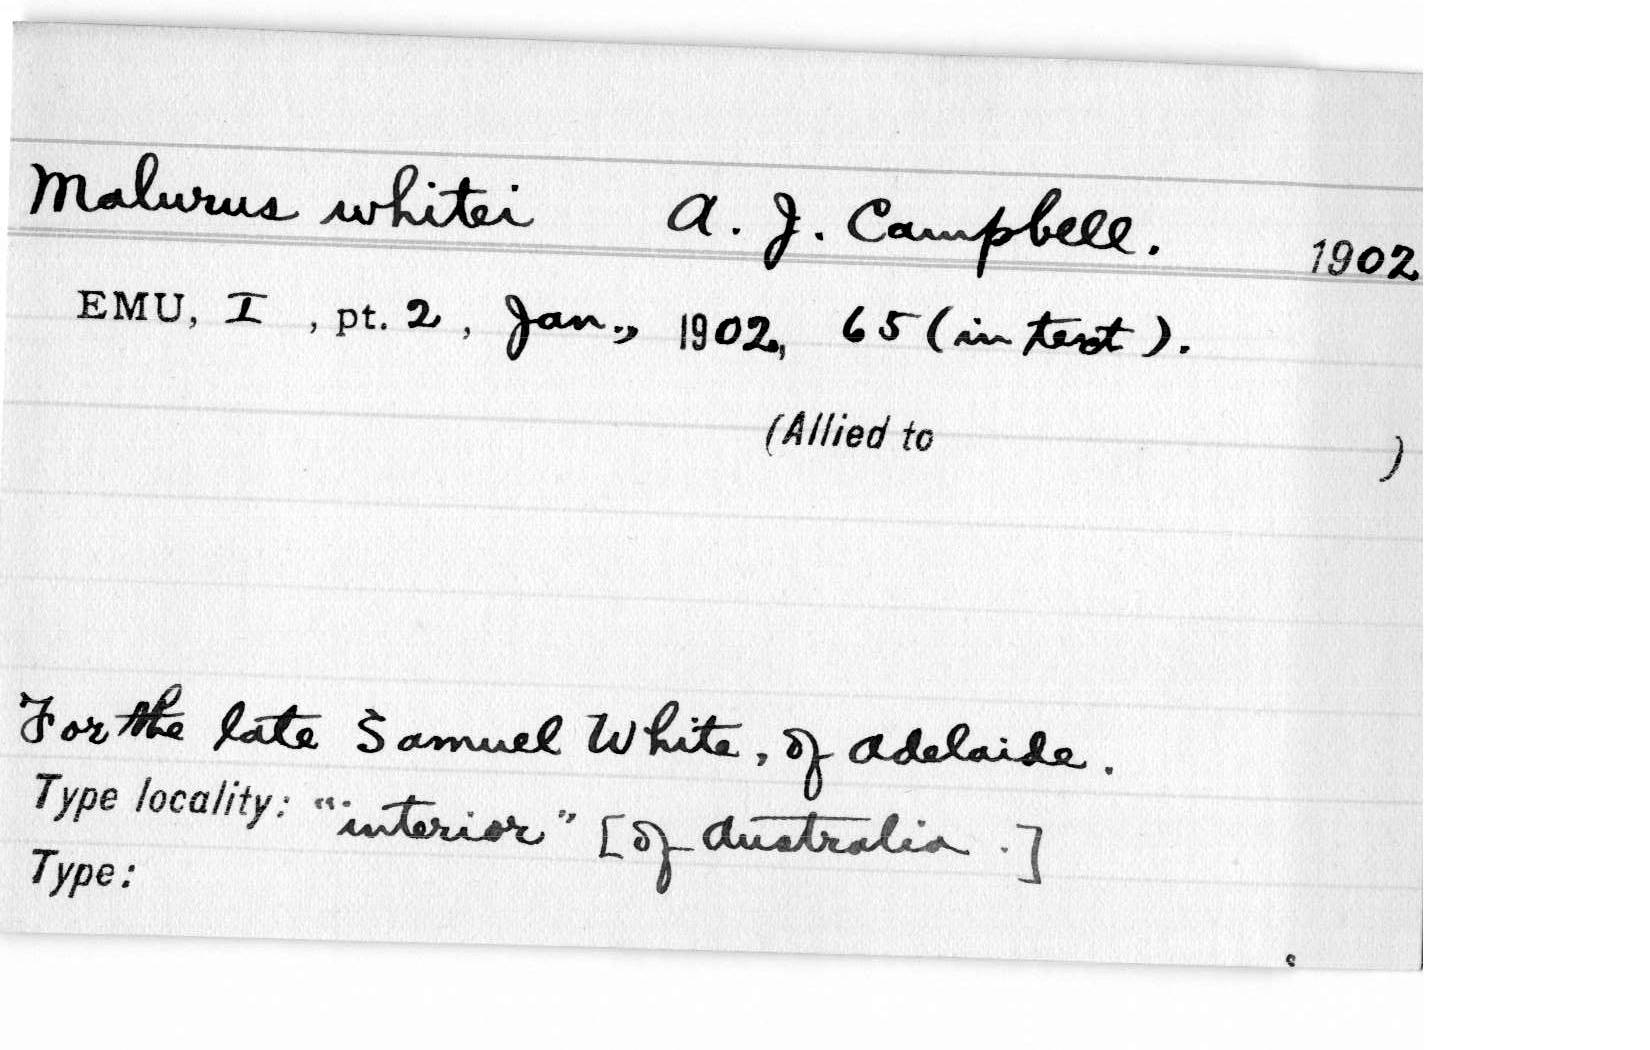 Malurus whitei A. J. Campbell. 1902
EMU, I , pt. 2 , Jan., 1902, 65 (in text).
(Allied to )
For the late Samuel White, of Adelaide.
Type locality: "interior" [of Australia.]
Type: